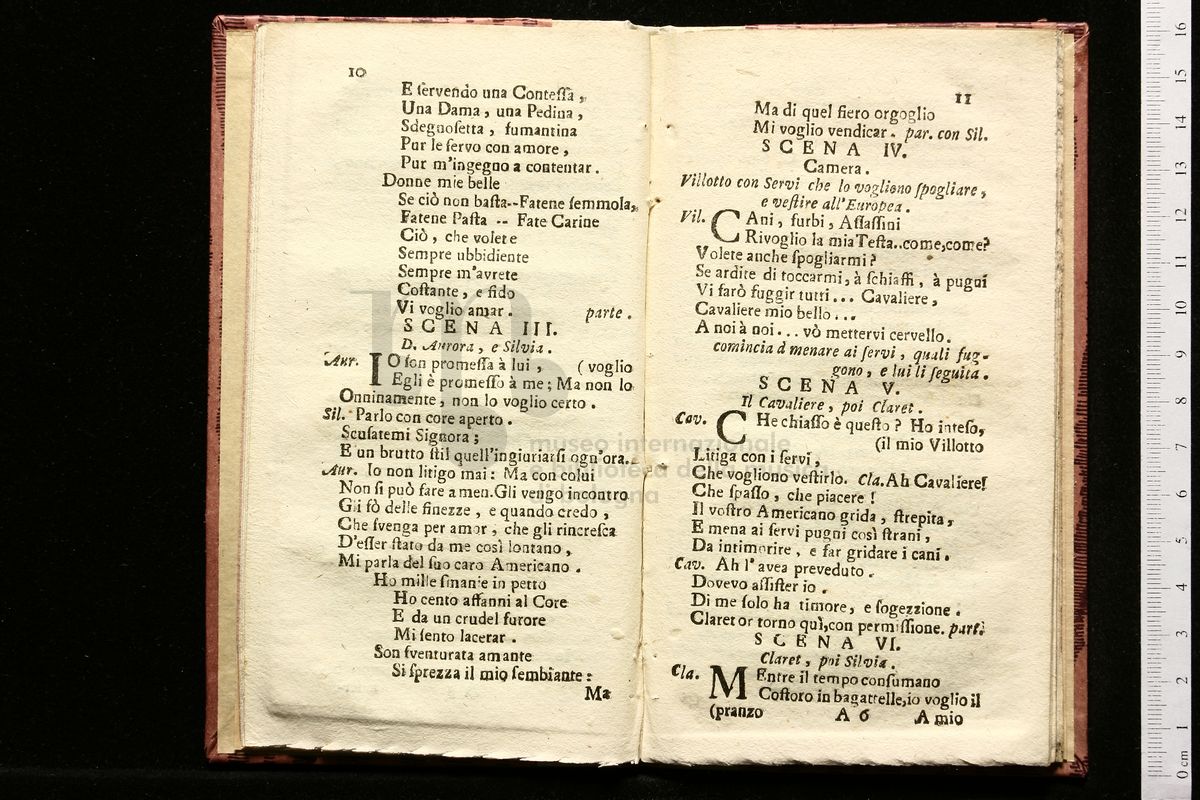 10
E ſervendo una Conteſſa,
Una Dama, una Pedina,
Sdegnoſetta, fumantina
Pur le ſervo con amore,
Pur m'ingegno a contentar.
Donne mie belle
Se ciò non baſta--Fatene ſemmola,
Fatene Paſta -- Fate Carine
Ciò, che volete
Sempre ubbidiente
Sempre m'avrete
Coſtante, e fido
Vi voglio amar. parte.
SCENA III.
D. Aurora, e Silvia.
Aur. IO ſon promeſſa à lui, (voglio
Egli è promeſſo à me; Ma non lo
Onninamente, non lo voglio certo.
Sil. Parlo con core aperto.
Scuſatemi Signora;
E un brutto ſtil quell'ingiuriarſi ogn'ora.
Aur. Io non litigo mai: Ma con colui
Non ſi può fare a men. Gli vengo incontro
Gli fò delle finezze, e quando credo,
Che ſvenga per amor, che gli rincreſca
D'eſſer ſtato da me così lontano,
Mi parla del ſuo caro Americano.
Ho mille ſmanie in petto
Ho cento affanni al Core
E da un crudel furore
Mi ſento lacerar.
Son ſventurata amante
Si ſprezza il mio ſembiante:
Ma
11
Ma di quel fiero orgoglio
Mi voglio vendicar. par. con Sil.
SCENA IV.
Camera.
Villotto con Servi che lo vogliono ſpogliare,
e veſtire all'Europea.
Vil. CAni, furbi, Aſſaſſini
Rivoglio la mia Teſta..come,come?
Volete anche ſpogliarmi?
Se ardite di toccarmi, à ſchiaffi, à pugni
Vi farò fuggir tutti... Cavaliere,
Cavaliere mio bello...
A noi à noi... vò mettervi cervello.
comincia à menare ai ſervi, quali fug-
gono, e lui li ſeguita.
SCENA V.
Il Cavaliere, poi Claret.
Cav. CHe chiaſſo è queſto? Ho inteſo,
(il mio Villotto
Litiga con i ſervi,
Che vogliono veſtirlo. Cla. Ah Cavaliere!
Che ſpaſſo, che piacere!
Il voſtro Americano grida, ſtrepita,
E mena ai ſervi pugni così ſtrani,
Da intimorire, e far gridare i cani.
Cav. Ah l'avea preveduto.
Dovevo aſſiſter io.
Di me ſolo ha timore, e ſogezzione.
Claret or torno quì, con permiſſione. parte
SCENA VI.
Claret, poi Silvia.
Cla. MEntre il tempo conſumano
Coſtoro in bagattelle, io voglio il
(pranzo A 6 A mio
museo internazionale
e biblioteca della musica
bologna
16
15
14
13
12
11
10
9
8
7
6
5
4
3
2
1
0 cm